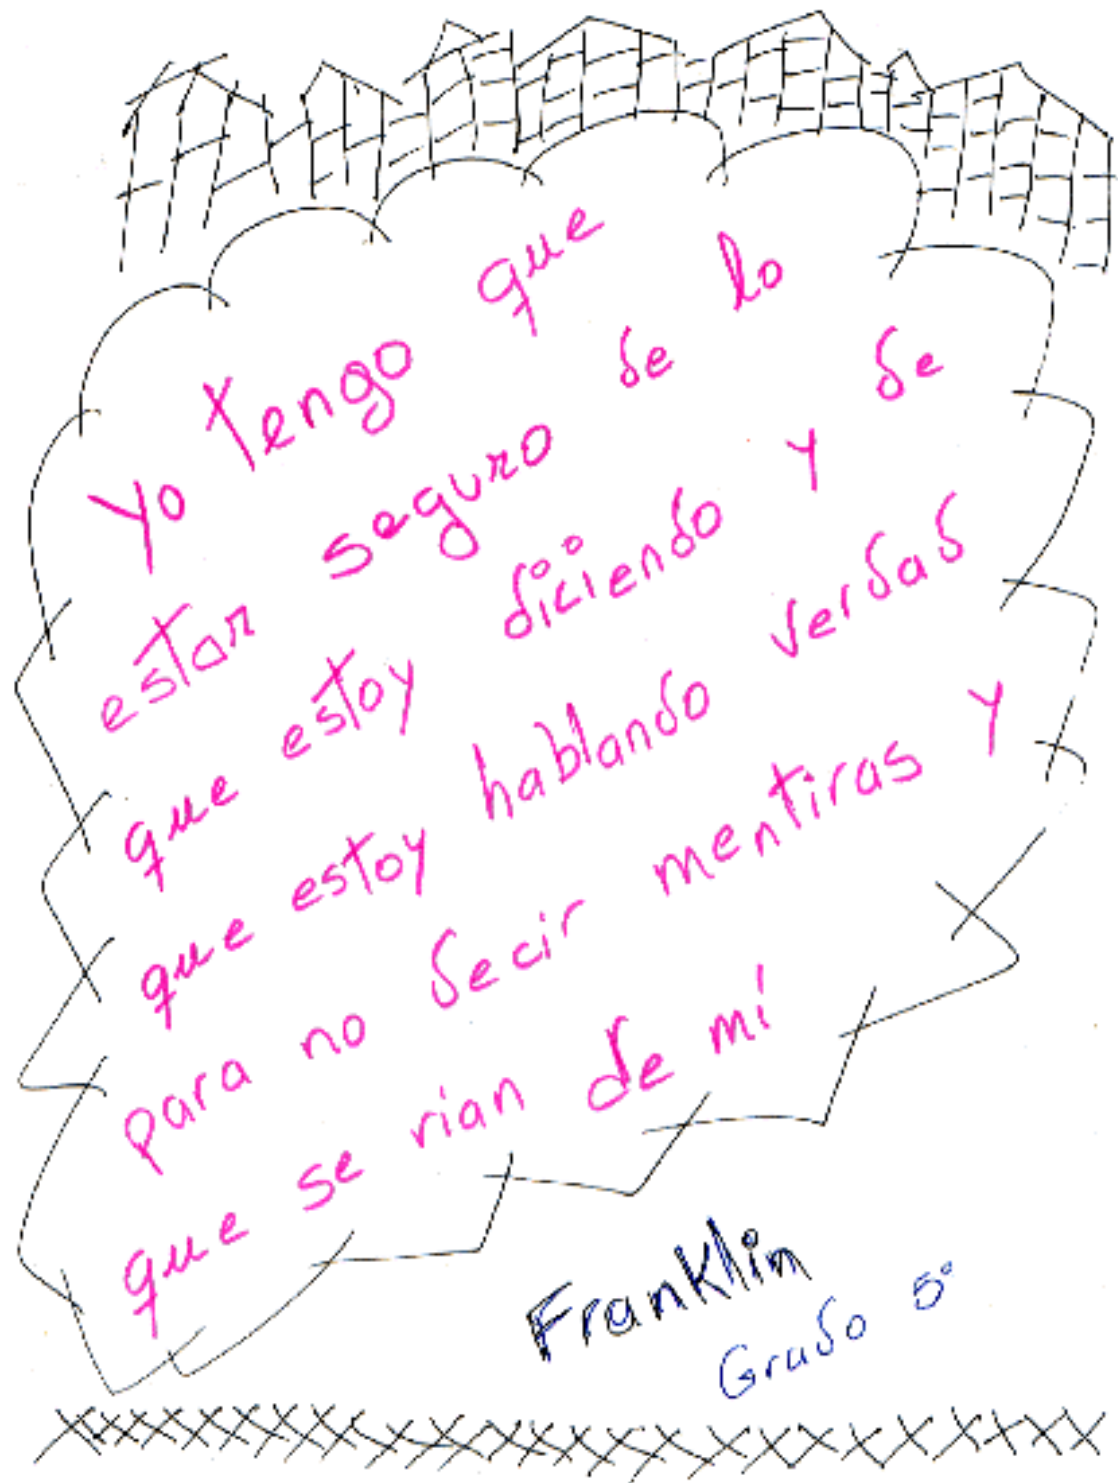 Yo tengo que
estar seguro de lo
que estoy diciendo y de
que estoy hablando verdad
para no decir mentiras y
que se rian de mí
Franklin
Grado 5°